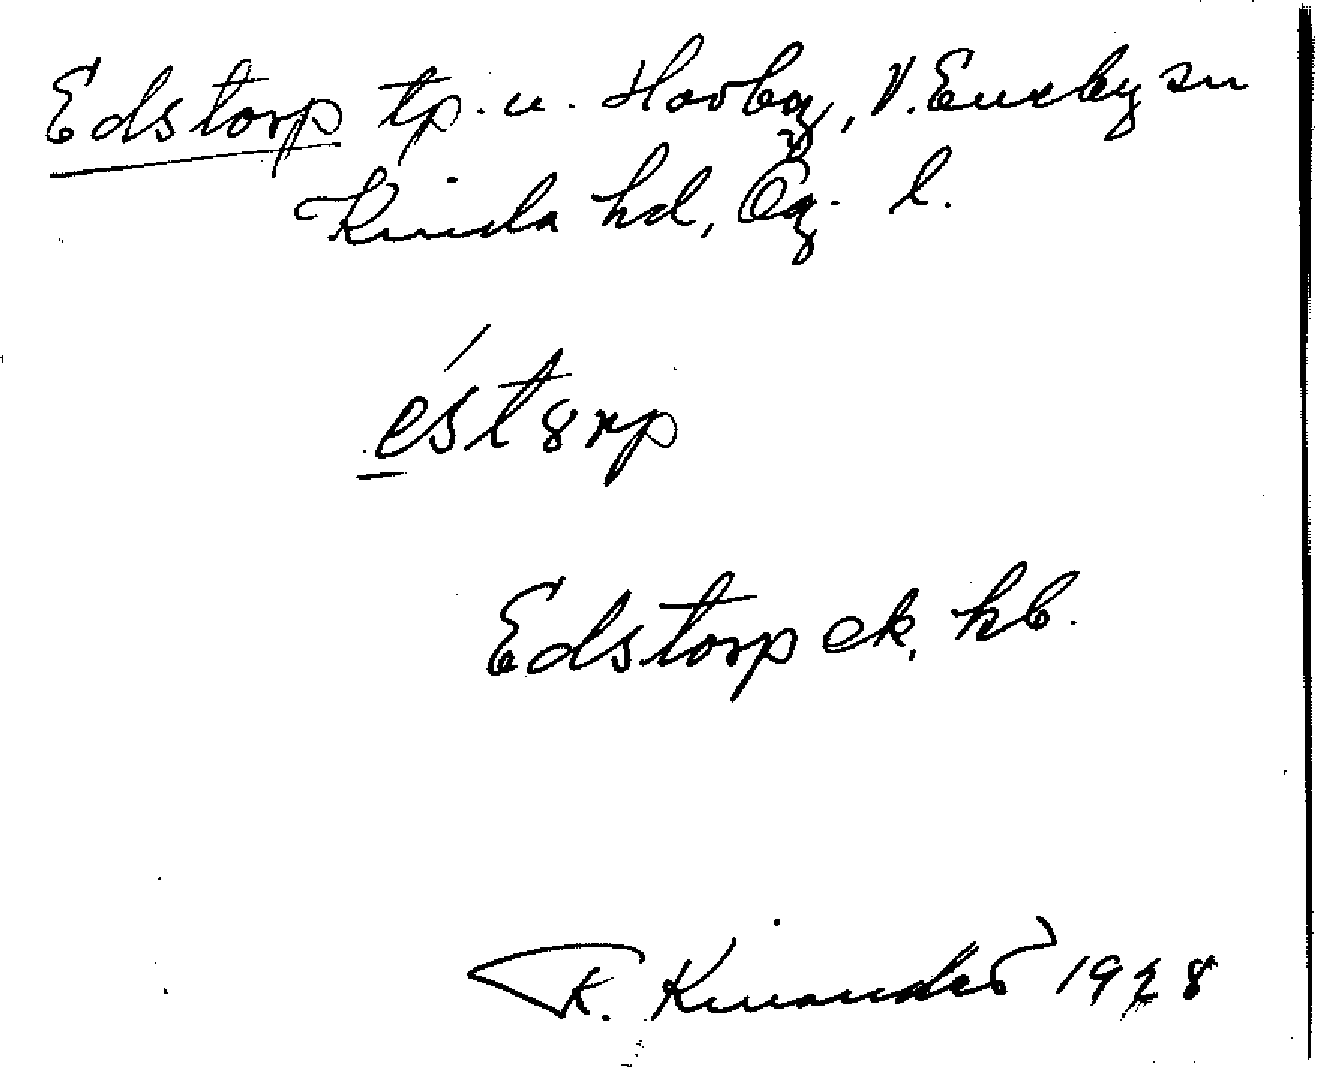 Edstorp tp. u. Hovby, V. Eneby sn
Kinda hd, Ög. l.
éstørp
Edstorp ek, hb.
R. Kinander 1928